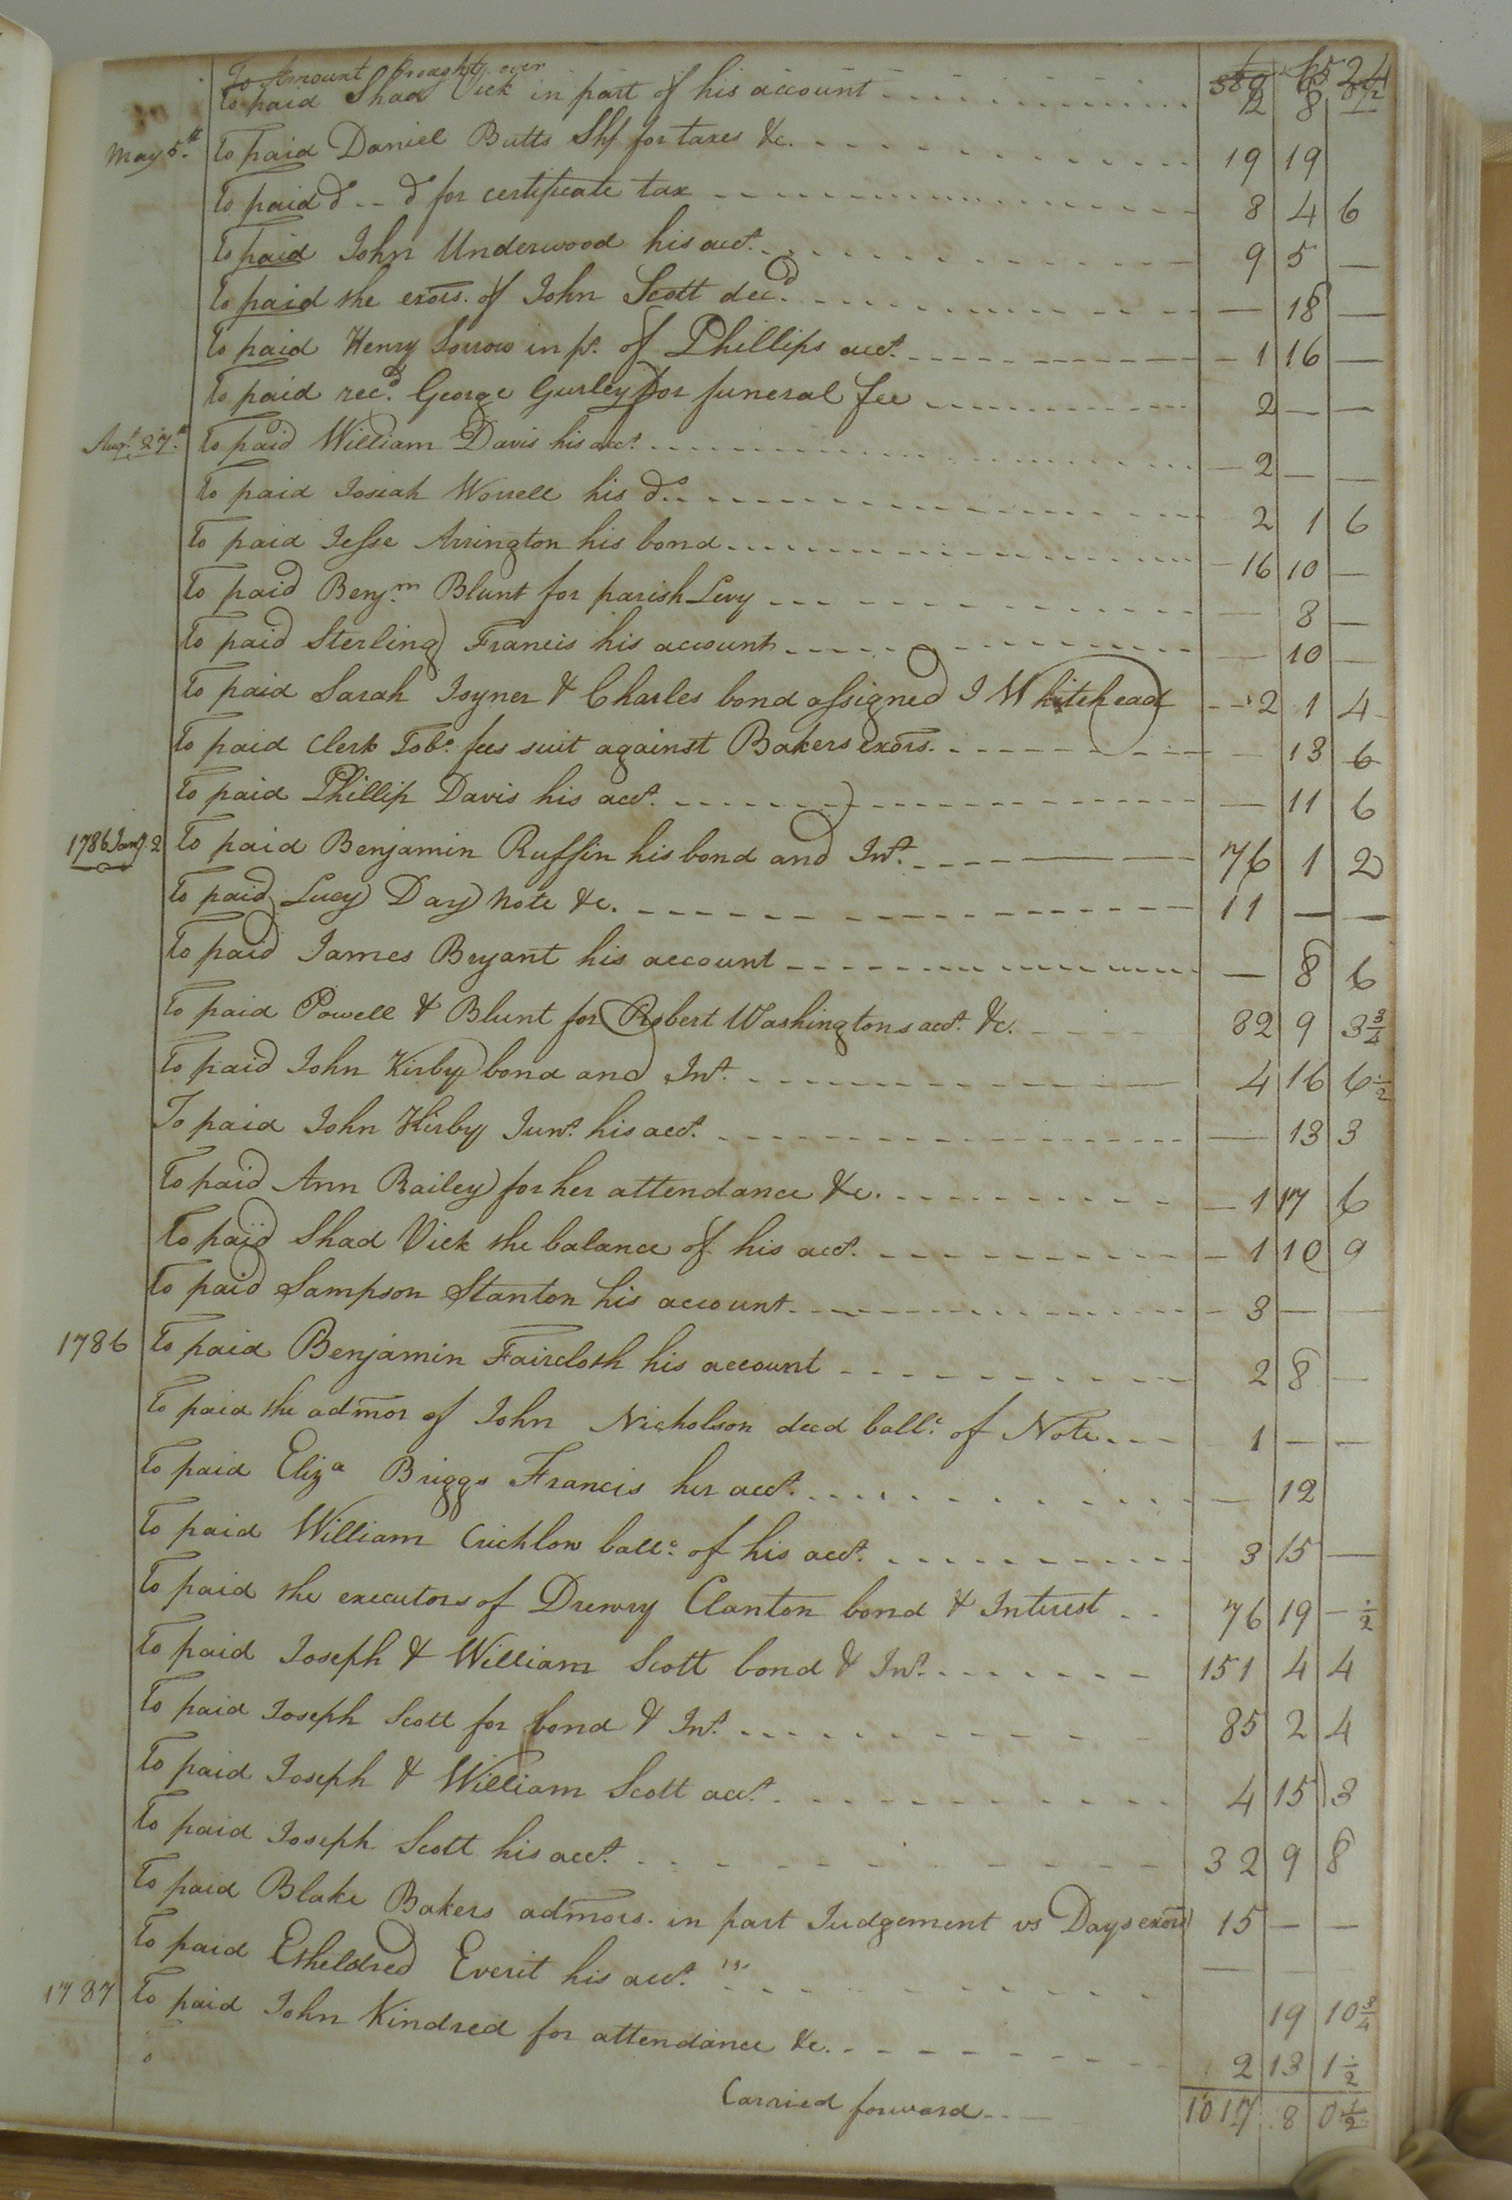 To Amount brought over
To paid Shad Vick in part of his account 2 8
May 5th To paid Daniel Butts Shf for taxes &c. 19 19
To paid do do for certificate tax 8 4 6
To paid John Underwood his acct. 9 5 —
To paid the exors. of John Scott decd. — 18 —
To paid Henry Sorrow in pt. of Phillips acct. 1 16 —
To paid recd. George Gurley for funeral fee 2 — —
Augt. 27th To paid William Davis his acct. 2 — —
To paid Josiah Worrell his do. 2 1 6
To paid Jesse Arrington his bond 16 10 —
To paid Benjm. Blunt for parish Levy — 8 —
To paid Sterling Francis his account — 10 —
To paid Sarah Joyner & Charles bond assigned J Whitehead 2 1 4
To paid Clerk Tobo. fees suit against Bakers exors. — 13 6
To paid Phillip Davis his acct. — 11 6
1786 Jany 2 To paid Benjamin Ruffin his bond and Int. 76 1 2
To paid Lucy Day note &c. 11 — —
To paid James Bryant his account — 8 6
To paid Powell & Blunt for Robert Washingtons acct. &c. 32 9 3 3/4
To paid John Kirby bond and Int. 4 16 6 1/2
To paid John Kirby Junr. his acct. — 13 3
To paid Ann Bailey for her attendance &c. 1 17 6
To paid Shad Vick the balance of his acct. 1 10 9
To paid Sampson Stanton his account 3 — —
1786 To paid Benjamin Faircloth his account 2 8 —
To paid the admor of John Nicholson decd ballc. of Note 1 — —
To paid Eliza Briggs Francis her acct. — 12
To paid William Crichlow ballc. of his acct. 3 15 —
To paid the executors of Drewry Clanton bond & Interest 76 19 — 1/2
To paid Joseph & William Scott bond & Int. 151 4 4
To paid Joseph Scott for bond & Int. 85 2 4
To paid Joseph & William Scott acct. 4 15 3
To paid Joseph Scott his acct. 32 9 8
To paid Blake Bakers admors. in part Judgement vs Days exors 15 — —
To paid Etheldred Everit his acct. 19 10 3/4
1787 To paid John Kindred for attendance &c. 2 13 1 1/2
Carried forward 1017 8 0 1/2